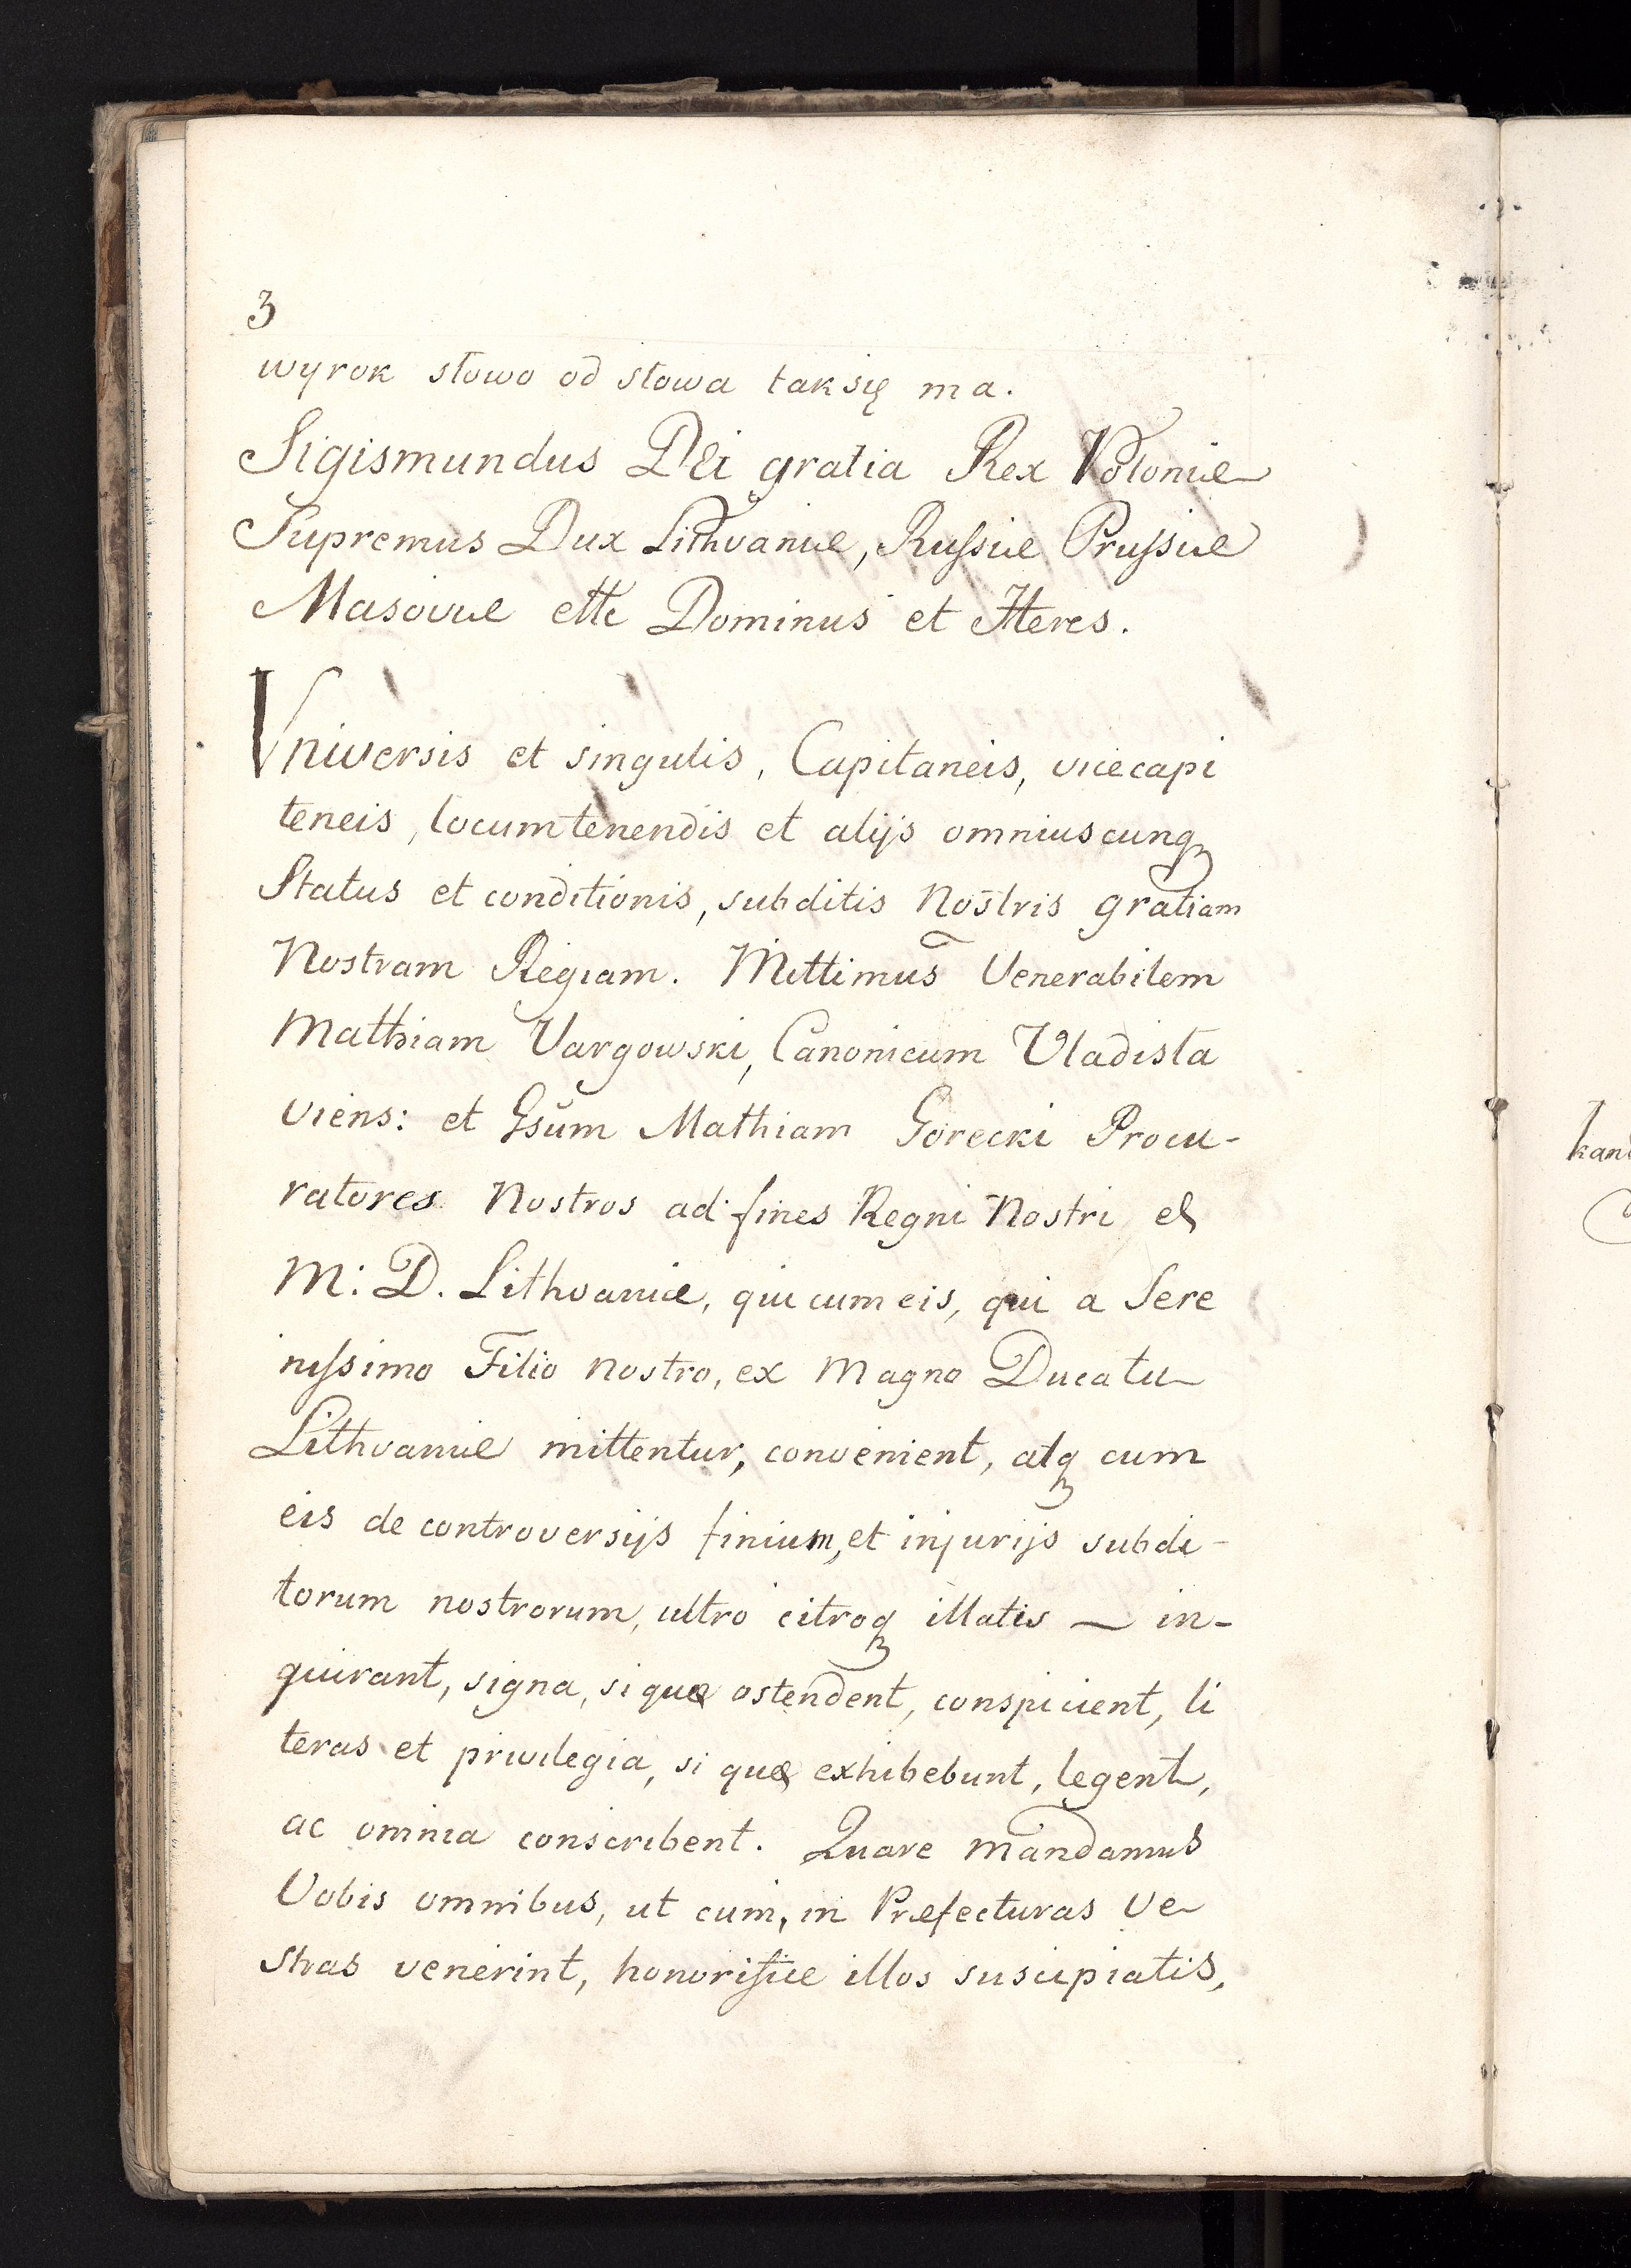 3
wyrok słowo od słowa tak się ma.
Sigismundus Dei gratia Rex Poloniæ
Supremus Dux Lithvaniæ, Rußiæ Prußiæ
Masoviæ ettc Dominus et Heres.
Vniversis et singulis, Capitaneis, vicecapi
teneis, locumtenendis et alijs omniuscunqꝫ
Status et conditionis, subditis Nostris gratiam
Nostram Regiam. Mittimus Venerabilem
Mathiam Vargowski, Canonicum Vladisla
viens: et Gsum Mathiam Gorecki Procu-
ratores Nostros ad fines Regni Nostri et
M: D. Lithvaniæ, qui cum eis, qui a Sere
nißimo Filio nostro, ex Magno Ducatu
Lithvaniæ mittentur, convenient, atqꝫ cum
eis de controversijs finium, et injurijs subdi-
torum nostrorum, ultro citroqꝫ illatis — in-
quirant, signa, si quæ ostendent, conspicient, li
teras et privilegia, si quæ exhibebunt, legent,
ac omnia conscribent. Quare mandamus
Vobis omnibus, ut cum, in Præfecturas Ve
stras venerint, honorifice illos suscipiatis,
kan